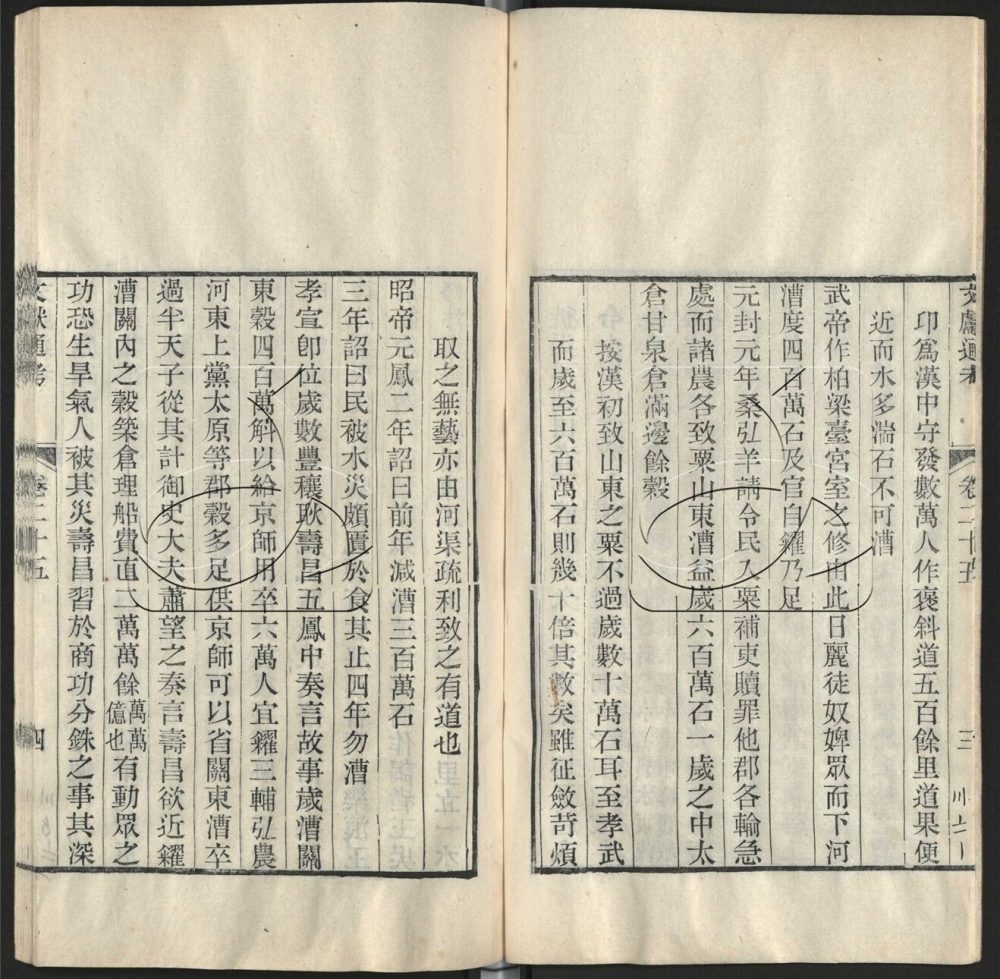 文獻通考 卷二十五 三
卬爲漢中守發數萬人作褒斜道五百餘里道果便
近而水多湍石不可漕
武帝作柏梁臺宮室之修由此日麗徒奴婢眾而下河
漕度四百萬石及官自糴乃足
元封元年桑弘羊請令民入粟補吏贖罪他郡各輸急
處而諸農各致粟山東漕益歲六百萬石一歲之中太
倉甘泉倉滿邊餘穀
按漢初致山東之粟不過歲數十萬石耳至孝武
而歲至六百萬石則幾十倍其數矣雖征斂苛煩
取之無藝亦由河渠疏利致之有道也
昭帝元鳳二年詔曰前年減漕三百萬石
三年詔曰民被水災頗匱於食其止四年勿漕
孝宣卽位歲數豐穰耿壽昌五鳳中奏言故事歲漕關
東穀四百萬斛以給京師用卒六萬人宜糴三輔弘農
河東上黨太原等郡穀多足供京師可以省關東漕卒
過半天子從其計御史大夫蕭望之奏言壽昌欲近糴
漕關內之穀築倉理船費直二萬萬餘萬萬億也有動眾之
功恐生旱氣人被其災壽昌習於商功分銖之事其深
文獻通考 卷二十五 四